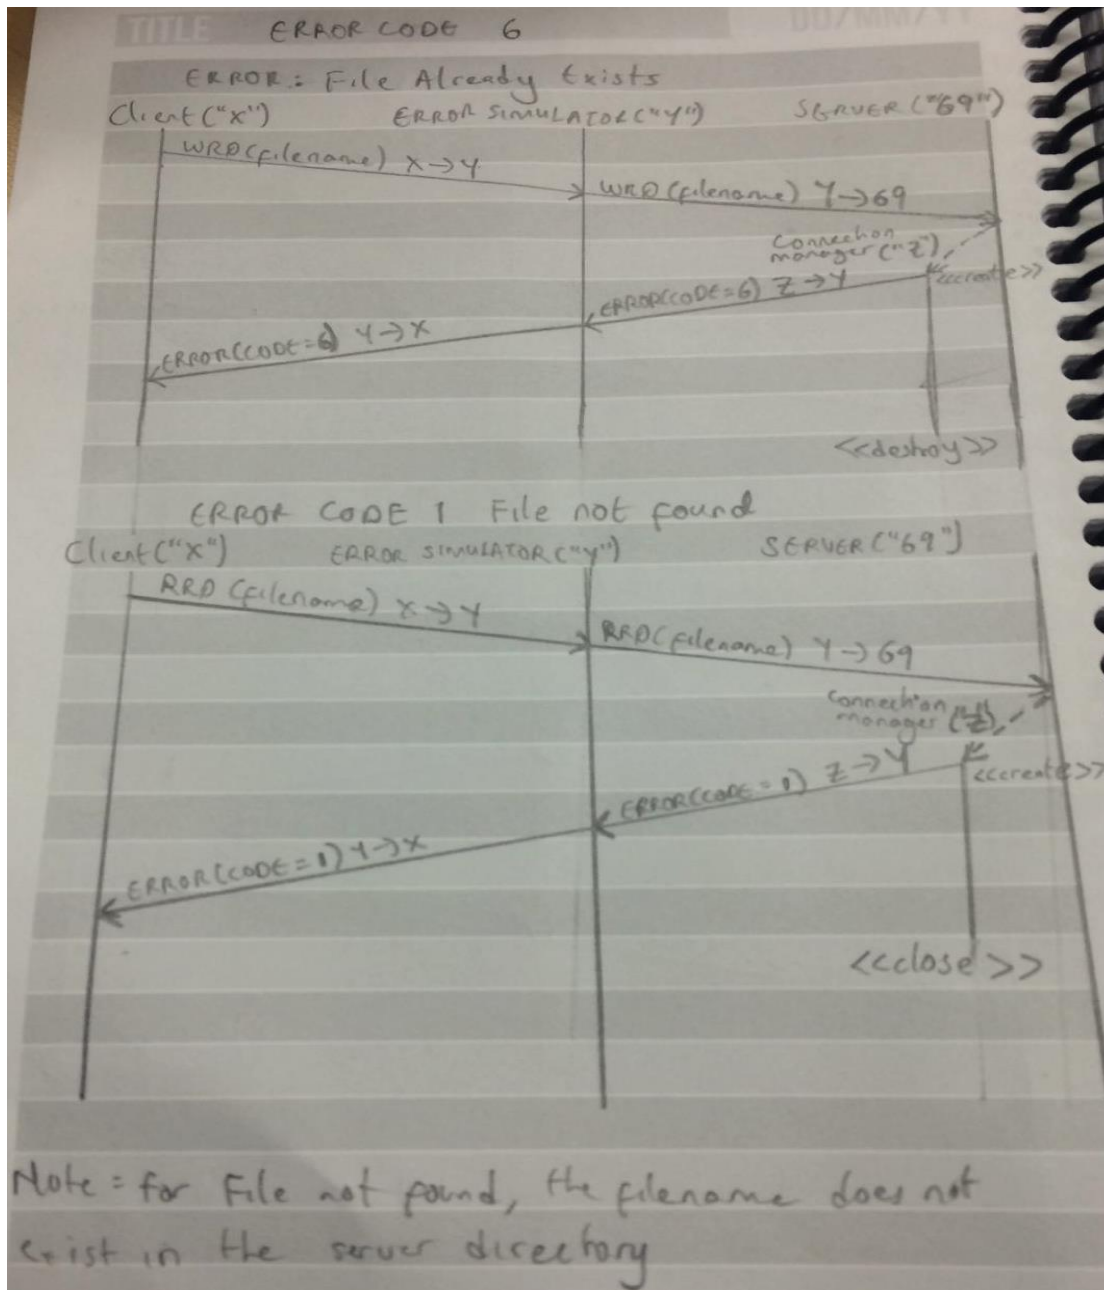 TITLE
DD/MM/YY
ERROR CODE 6
ERROR: File Already Exists
Client ("X")
ERROR SIMULATOR ("Y")
SERVER ("69")
WRQ (filename) X→Y
WRQ (filename) Y→69
Connection
manager ("Z")
<<create>>
ERROR(CODE=6) Z→Y
ERROR(CODE=6) Y→X
<<destroy>>
ERROR CODE 1 File not found
Client ("X")
ERROR SIMULATOR ("Y")
SERVER ("69")
RRQ (filename) X→Y
RRQ (filename) Y→69
Connection
manager ("Z")
<<create>>
ERROR(CODE=1) Z→Y
ERROR(CODE=1) Y→X
<<close>>
Note = for File not found, the filename does not
exist in the server directory